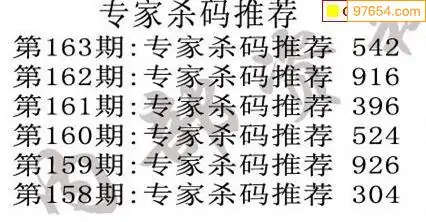 专家杀码推荐
97654.com
第163期:专家杀码推荐 542
第162期:专家杀码推荐 916
第161期:专家杀码推荐 396
第160期:专家杀码推荐 524
第159期:专家杀码推荐 926
第158期:专家杀码推荐 304